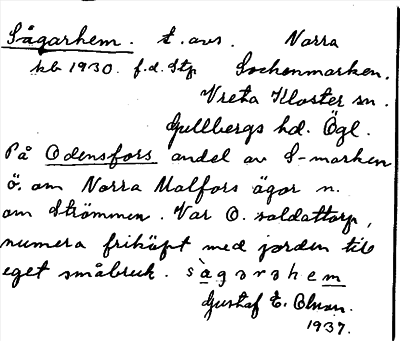 Sågarhem. t. avs. Norra
kb 1930. f.d. Stp Sockenmarken.
Vreta Kloster sn.
Gullbergs hd. Ögl.
På Odensfors andel av S-marken
ö. om Norra Malfors ägor n.
om Strömmen. Var O. soldattorp,
numera friköpt med jorden till
eget småbruk. sàgarahem
Gustaf E. Olson.
1937.